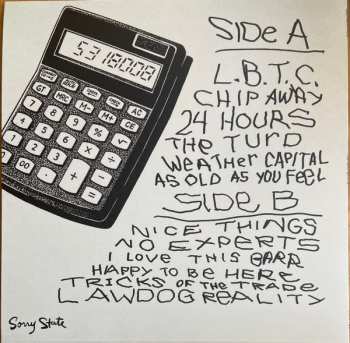 5318008
GT
MRC
M-
M+
AC
7
8
9
%
√
CE
4
5
6
×
÷
1
2
3
+
-
0
00
.
=
SIDE A
L.B.T.C.
CHIP AWAY
24 HOURS
THE TURD
WEATHER CAPITAL
AS OLD AS YOU FEEL
SIDE B
NICE THINGS
NO EXPERTS
I LOVE THIS BARR
HAPPY TO BE HERE
TRICKS OF THE TRADE
LAWDOG REALITY
Sorry State